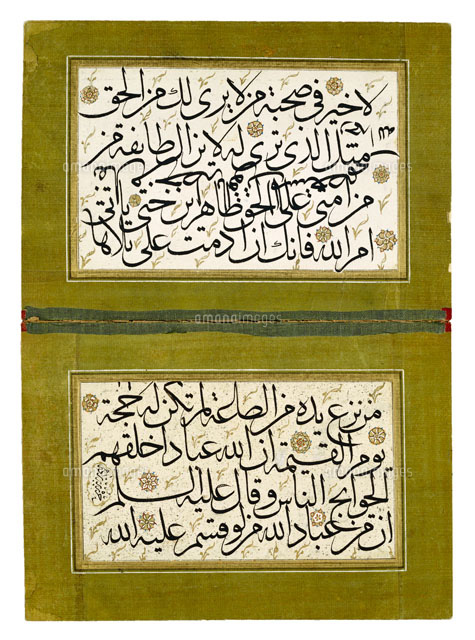 لا خير في صحبة من لا يرى لك من الحق
مثل الذي ترى له لا تزال طايفة من
من امتي على الحق ظاهرين حتى ياتي
امر الله فانك ان ادمت على
amanaimages
من نزع يده من الطاعة لم تكن له حجة
يوم القيمة ان لله عبادا خلقهم
لحوايج الناس وقال عليه السلم
ان من عباد الله من لو قسم عليه الله